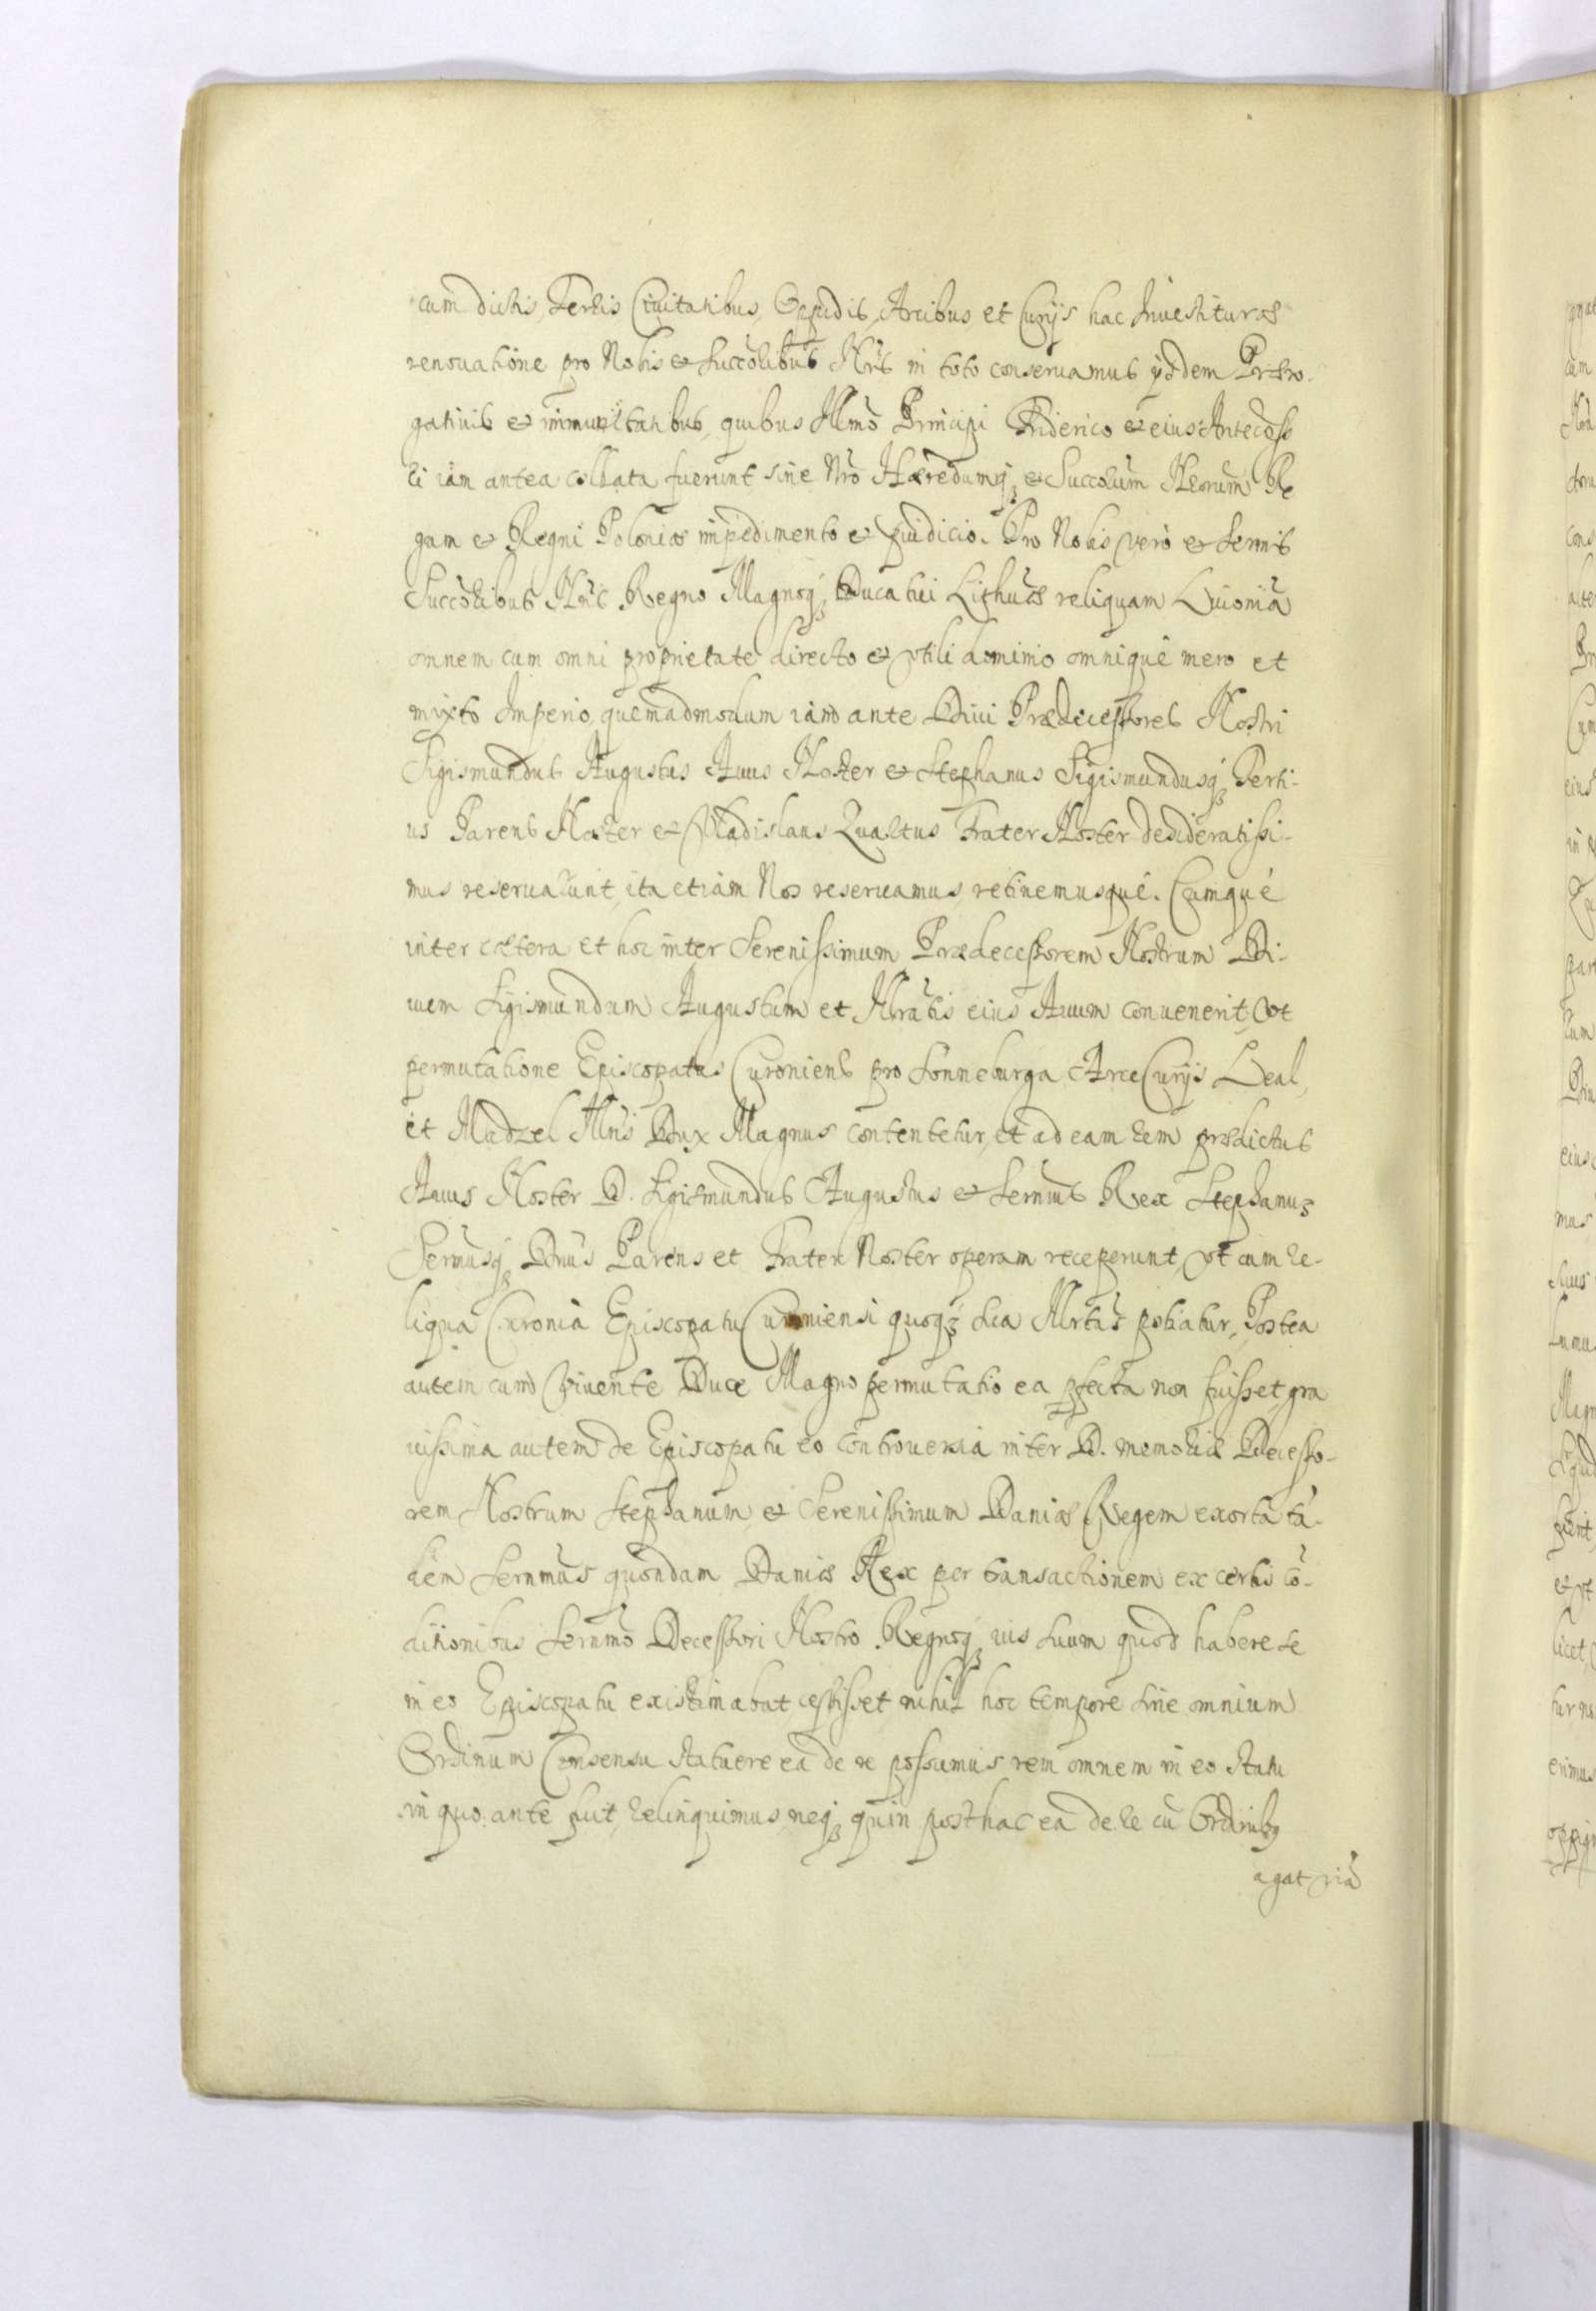 cum dictis, Terris Civitatibus, Oppidis, Arcibus et Curijs hac Inuestituræ
renouatione pro Nobis & Succoribus Nris in toto conseruamus ijsdem Præro-
gatiuis & immunitatibus, quibus Illmo Principi Friderico & eius Antecesso
ri iam antea collata fuerunt sine Nro Hæredumq; & Succorum Nrorum Re
gum & Regni Poloniæ impedimento & pudicio. Pro Nobis vero & Sermis
Succoribus Nris Regno Magnoq; Ducatui Lithuæ reliquam Liuoniã
omnem cum omni proprietate directo & vtili dominio omniquè mero et
mixto Imperio, quemadmodum iam ante Diui Prædecessores Nostri
Sigismundus Augustus Auus Noster & Stephanus Sigismundusq; Terti-
us Parens Noster & Vladislaus Quartus Frater Noster desideratissi-
mus reseruarunt, ita etiam Nos reseruamus, retinemusquè. Cumquè
inter cætera et hoc inter Serenissimum Prædecessorem Nostrum Di-
uum Sigismundum Augustum et Illratis eius Auum conuenerit, vt
permutatione Episcopatus Curoniens pro Sonneburga Arce Curijs Leal,
et Hadzel Illris Dux Magnus contentetur, et ad eam rem prædictus
Auus Noster D. Sigismundus Augustus & Sermus Rex Stephanus
Sermusq; Dnus Parens et Frater Noster operam receperunt, vt cum re-
liqua Curonia Episcopatu Curoniensi quoq; Sua Illrtas potiatur, Postea
autem cum viuente Duce Magno permutatio ea pfecta non fuisset, gra
uissima autem de Episcopatu eo controuersia inter D. memoriæ Decesso-
rem Nostrum Stephanum & Serenissimum Daniæ Regem exorta tã-
dem Sernmus quondam Daniæ Rex per transactionem ex certis cõ-
ditionibus Sernmo Decessori Nostro Regnoq; ius suum quod habere se
in eo Episcopatu existimabat, cessisset, nihil hoc tempore sine omnium
Ordinum Consensu statuere ea de re possumus, rem omnem in eo statu
in quo ante fuit, relinquimus, neq; quin posthac ea de re cũ Ordinibg
agat, viã